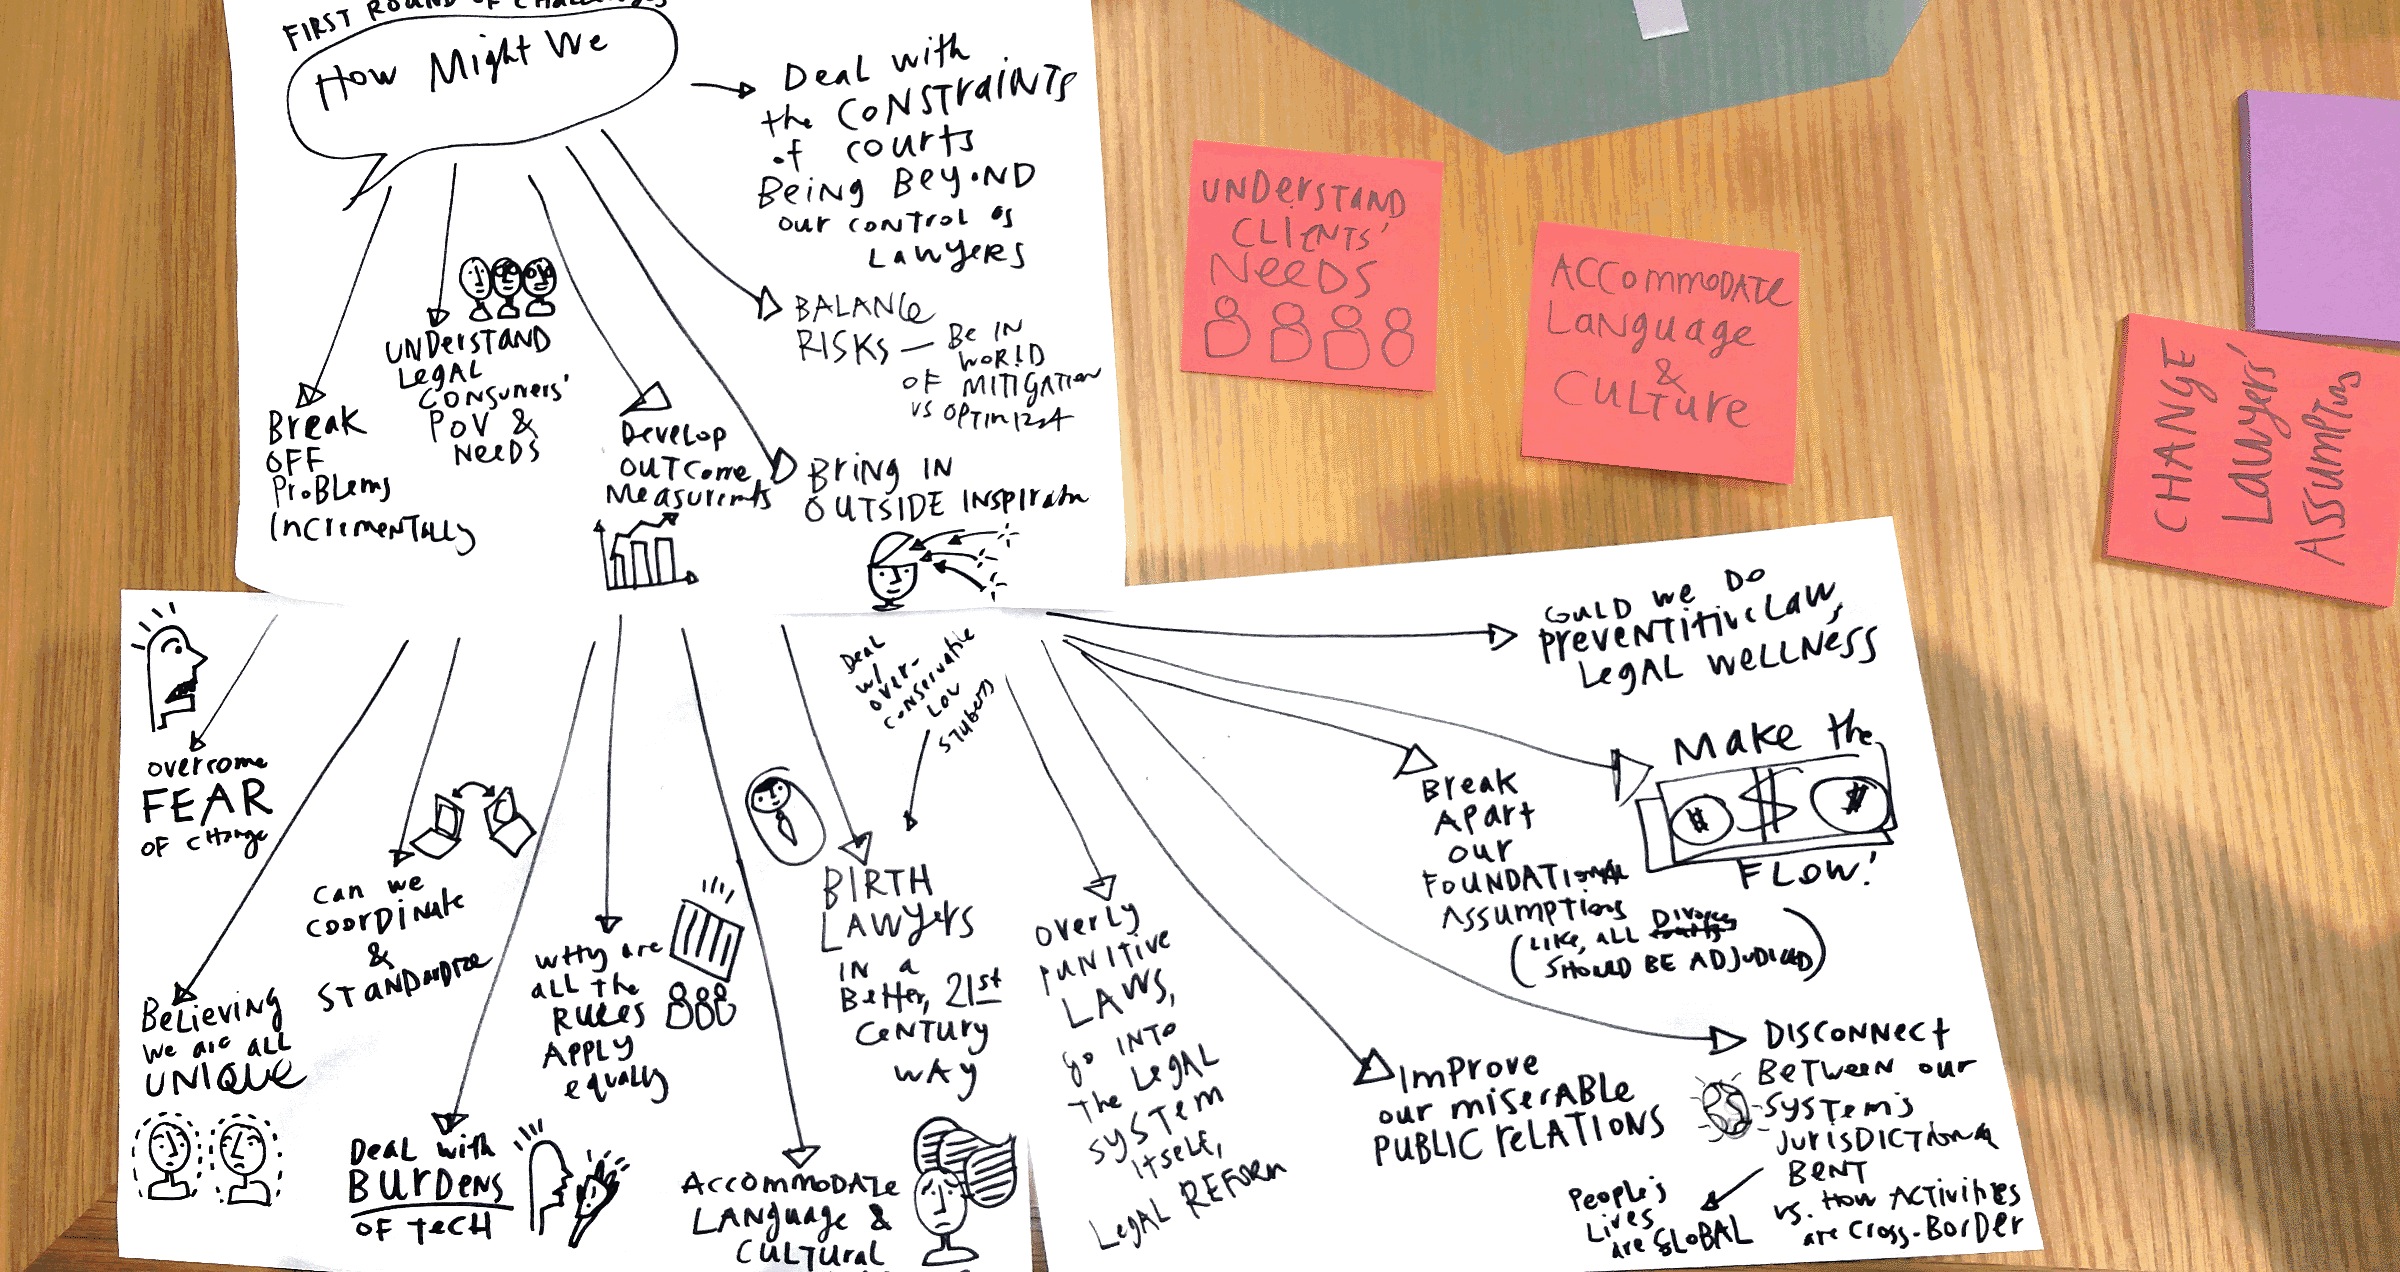 FIRST ROUND OF CHALLENGES
How Might We
Deal with
the CONSTRAINTS
of courts
Being Beyond
our control as
Lawyers
BALANCE
RISKS — Be IN
WORLD
OF MITIGATION
VS
Bring IN
OUTSIDE
Develop
OUTCome
Measurements
UNDerstAND
LegAL
Consumers'
POV &
Needs
Break
OFF
Problems
Incrementally
overcome
FEAR
of change
Believing
We are all
UNIQUE
can we
coordinate
&
STandardize
Deal with
BURDENS
OF TECH
Why are
all the
Rules
APPLY
equally
Accommodate
Language &
Cultural
BIRTH
Lawyers
IN a
Better, 21st
Century
WAY
Deal
w/
over-
conservative
Law
overly
punitive
LAWS,
go INTO
The Legal
SYSTEM
itself,
Legal REFORM
Improve
our miserable
PUBLIC relations
DISCONNECT
Between our
System's
Jurisdictional
BENT
vs. How Activities
are Cross-Border
People's
Lives
are GLOBAL
Break
Apart
our
Foundational
Assumptions
(Like, ALL Divorces
SHOULD BE ADJUDICATED)
Make the
$ $ $
FLOW!
Could we Do
Preventitive Law,
Legal Wellness
UNDerstAND
CLIENTS'
Needs
Accommodate
Language
&
CULTURE
CHANGE
Lawyers'
Assumptions